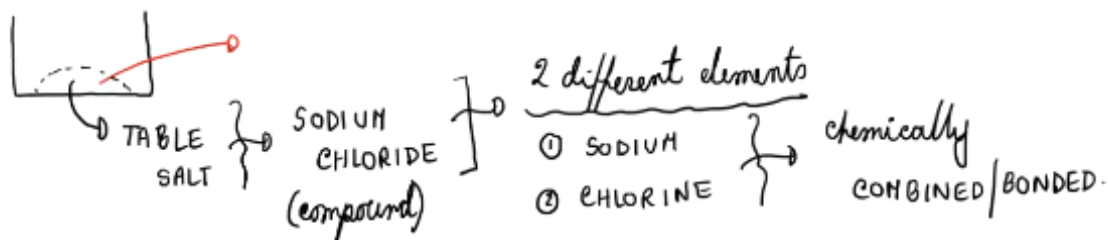 TABLE
SALT
SODIUM
CHLORIDE
(compound)
2 different elements
① SODIUM
② CHLORINE
chemically
COMBINED/BONDED.